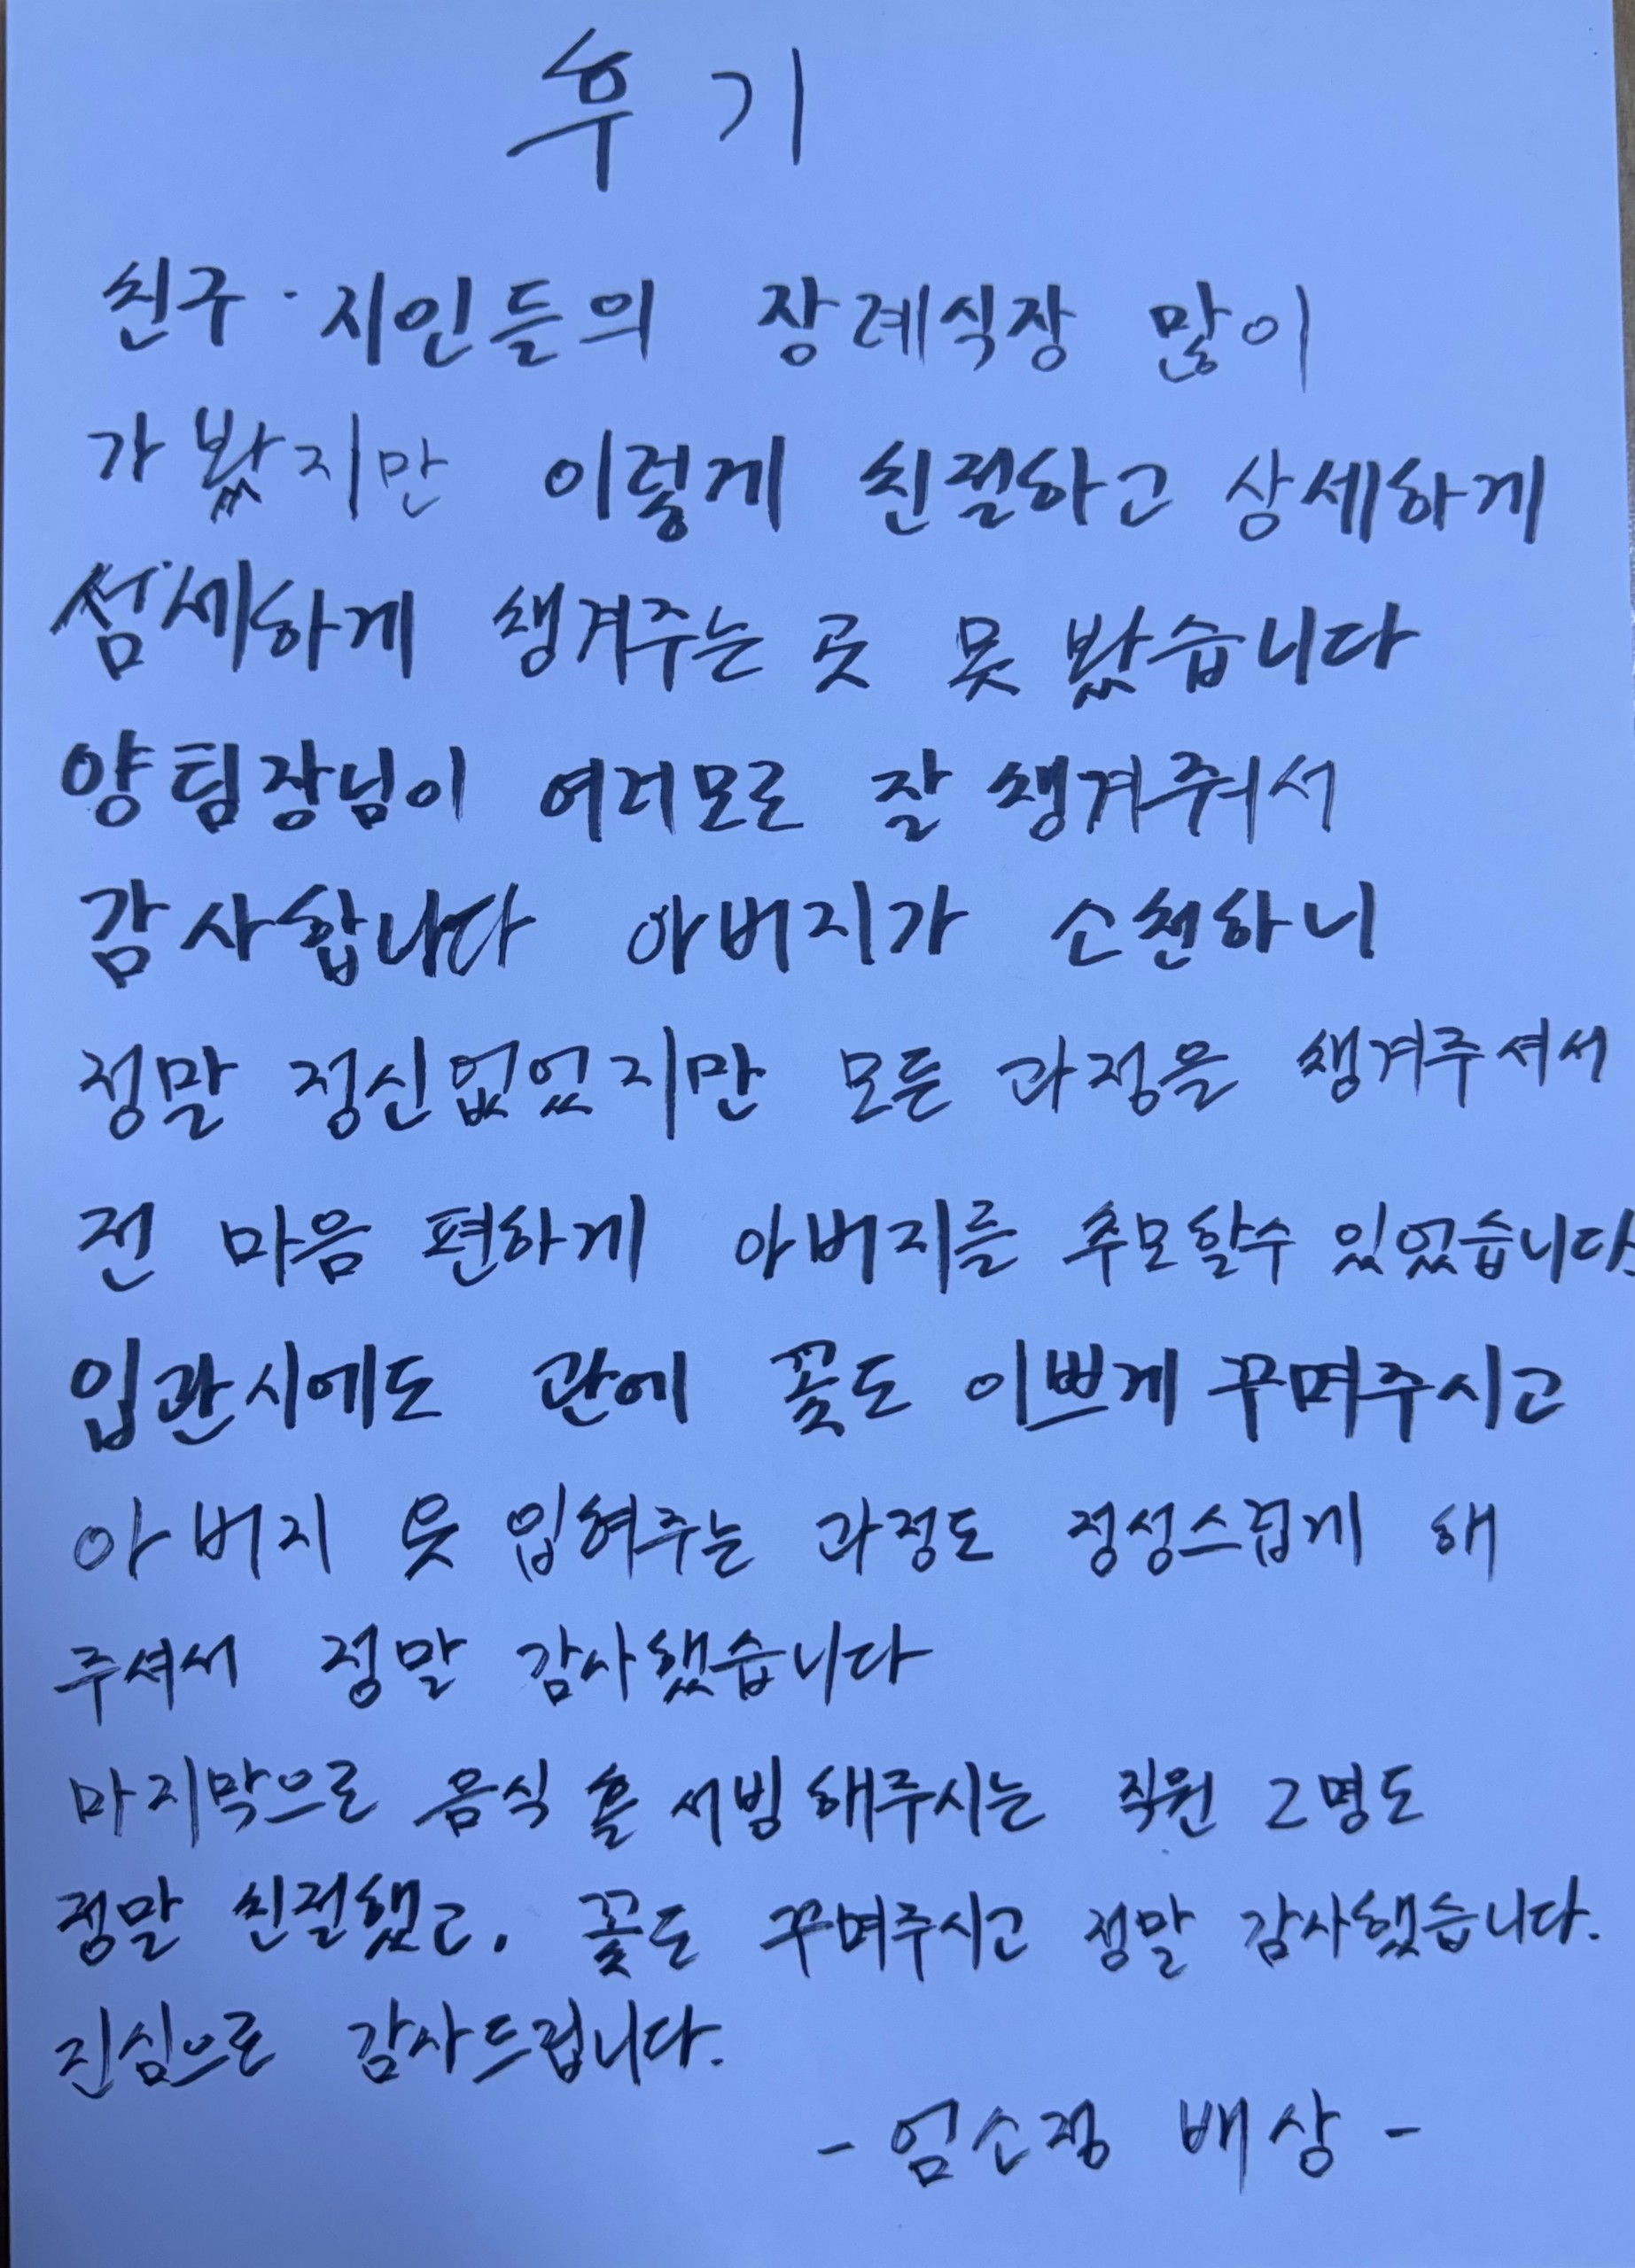 후기
친구·지인들의 장례식장 많이
가봤지만 이렇게 친절하고 상세하게
섬세하게 챙겨주는 곳 못 봤습니다
양팀장님이 여러모로 잘 챙겨줘서
감사합니다 아버지가 소천하니
정말 정신없었지만 모든 과정을 챙겨주셔서
전 마음 편하게 아버지를 추모할수 있었습니다.
입관시에도 관에 꽃도 이쁘게 꾸며주시고
아버지 옷 입혀주는 과정도 정성스럽게 해
주셔서 정말 감사했습니다
마지막으로 음식 홀 서빙해주시는 직원 2명도
정말 친절했고. 꽃도 꾸며주시고 정말 감사했습니다.
진심으로 감사드립니다.
- 엄소정 배상 -